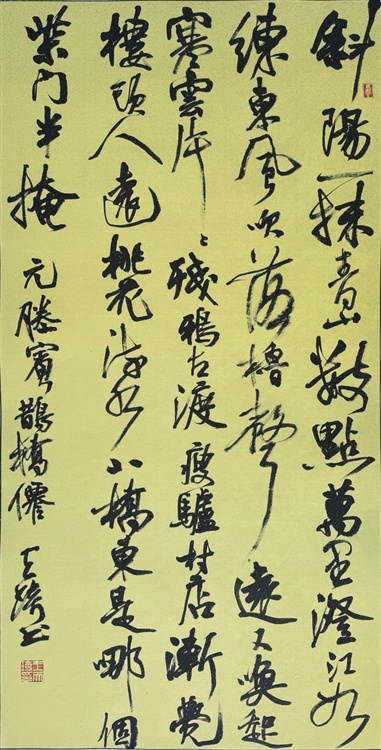 斜陽一抹青山數點萬里澄江如
練東風吹落櫓聲遠又喚起
寒雲片〻殘鴉古渡瘦驢村店漸覺
樓頭人遠桃花流水小橋東是哪個
柴門半掩 元滕賓鵲橋僊 书